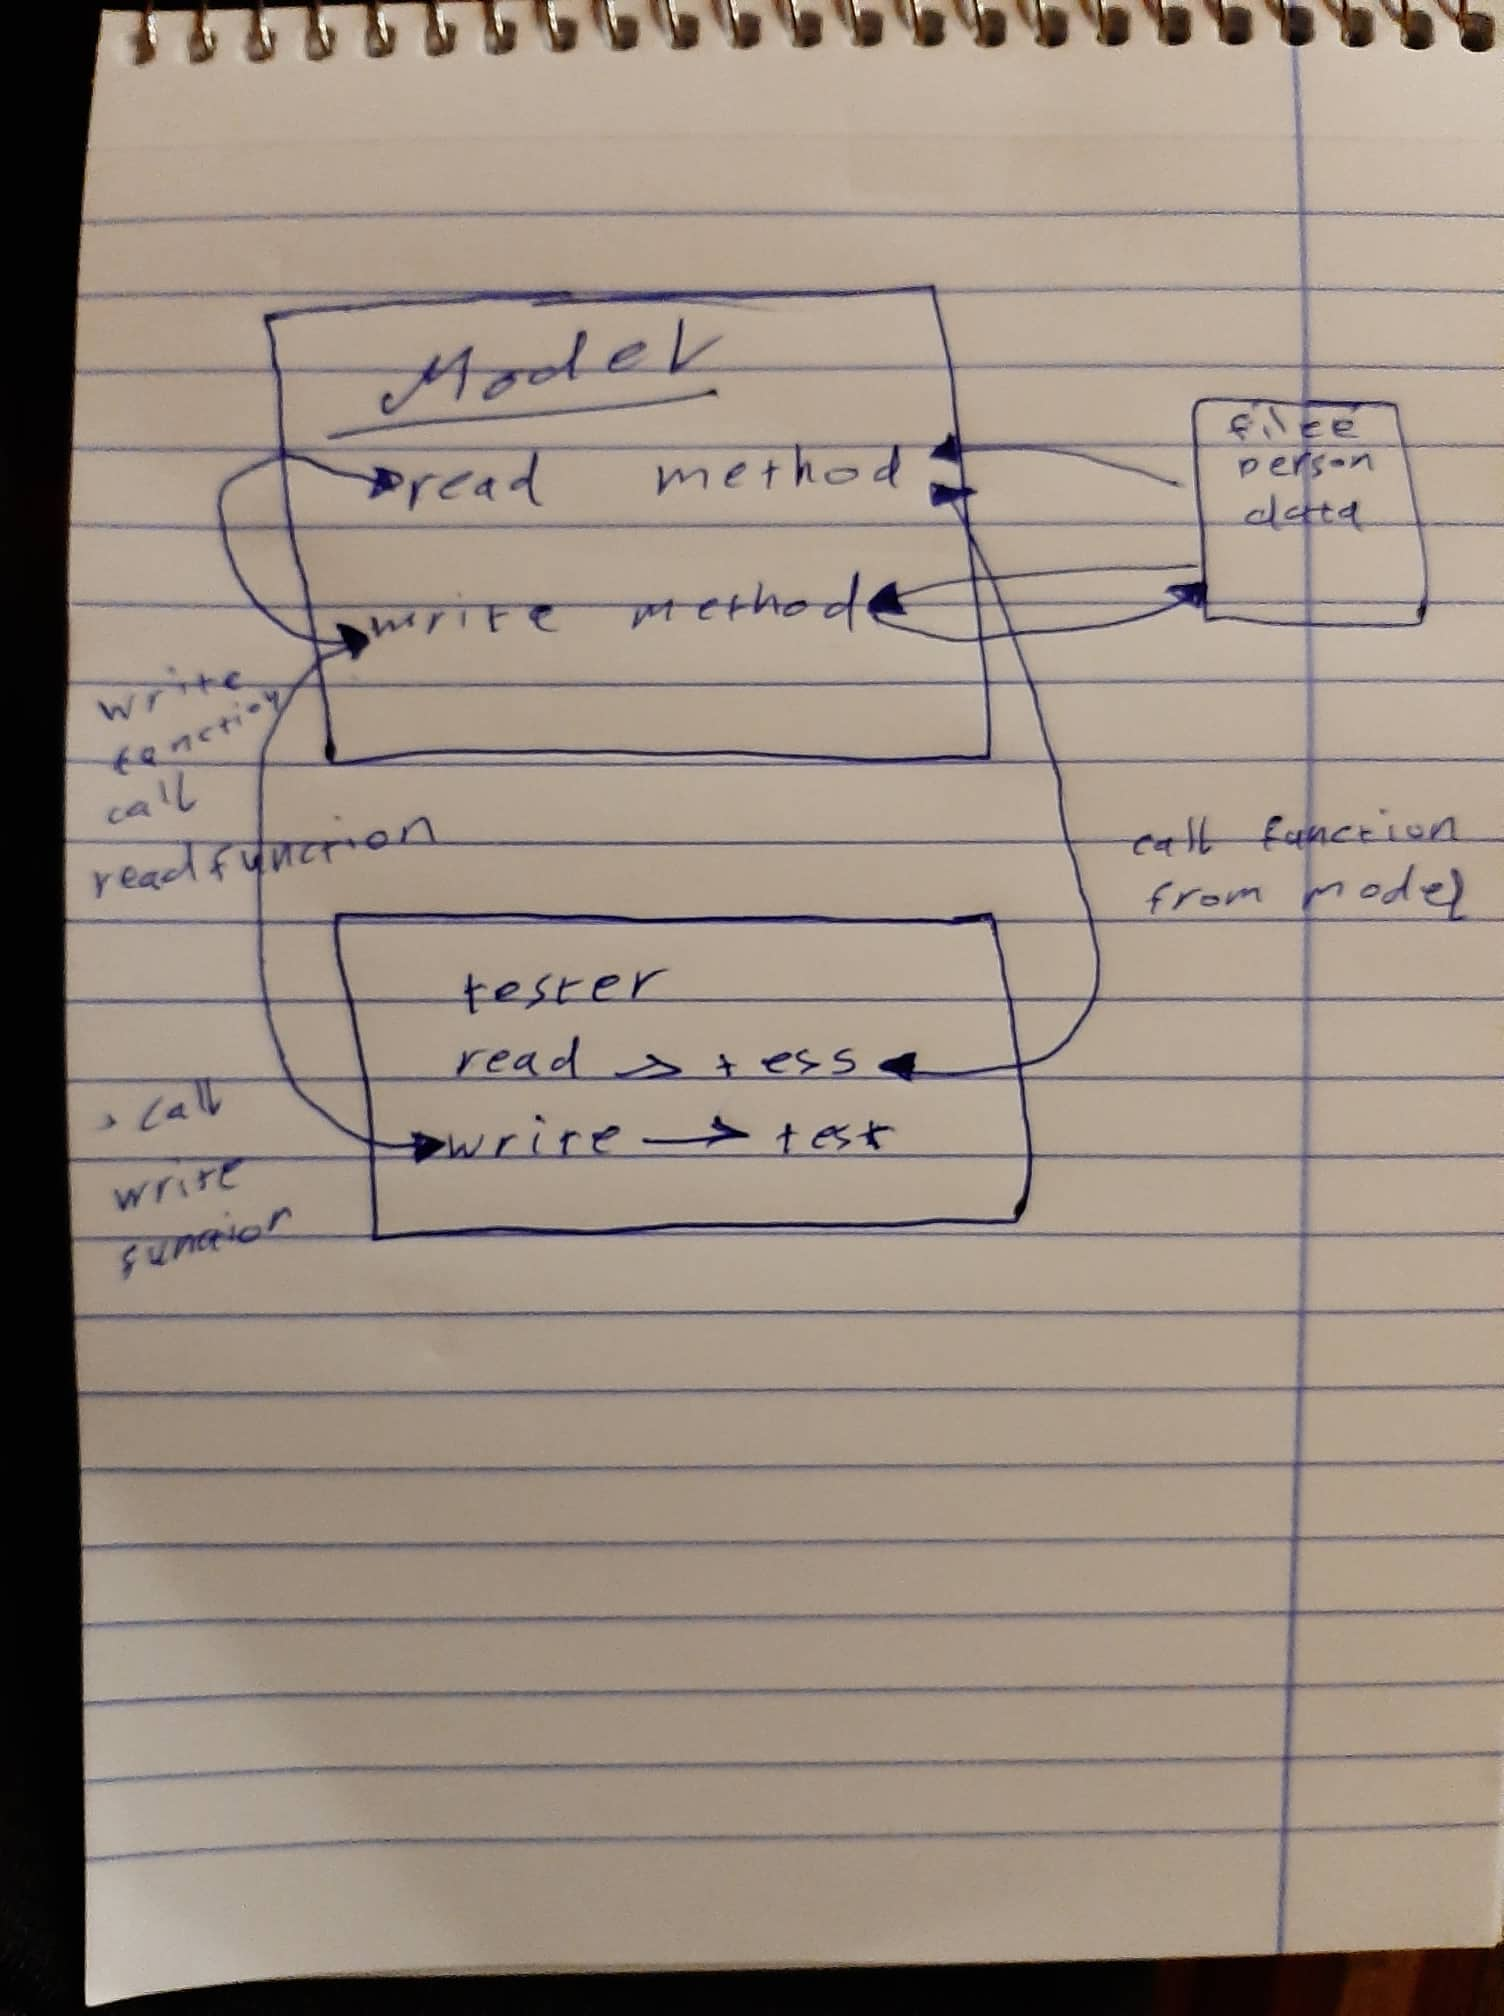 Model
read method
write method
filee
person
data
write
function
call
readfunction
call function
from model
tester
read > tess
write → test
call
write
function